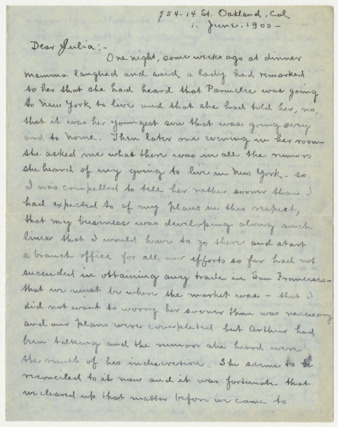 954-14 St. Oakland, Cal
1. June. 1900-
Dear Julia:-
One night, some weeks ago at dinner
mamma laughed and said a lady had remarked
to her that she had heard that Parmelee was going
to New York to live and that she had told her, no,
that it was her youngest son that was going away
and to Nome. Then later one evening in her room
she asked me what there was in all the rumors
she heard of my going to live in New York - so
I was compelled to tell her rather sooner than I
had expected to of my plans in this respect,
that my business was developing along such
lines that I would have to go there and start
a branch office for all our efforts so far had not
succeeded in obtaining any trade in San Francisco-
that we must be where the market was - that I
did not want to worry her sooner than was necessary
and our plans were completed but Arthur had
been talking and the rumors she heard were
the result of his indiscretion. She seems to be
reconciled to it now and it was fortunate that
we cleared up that matter before we came to